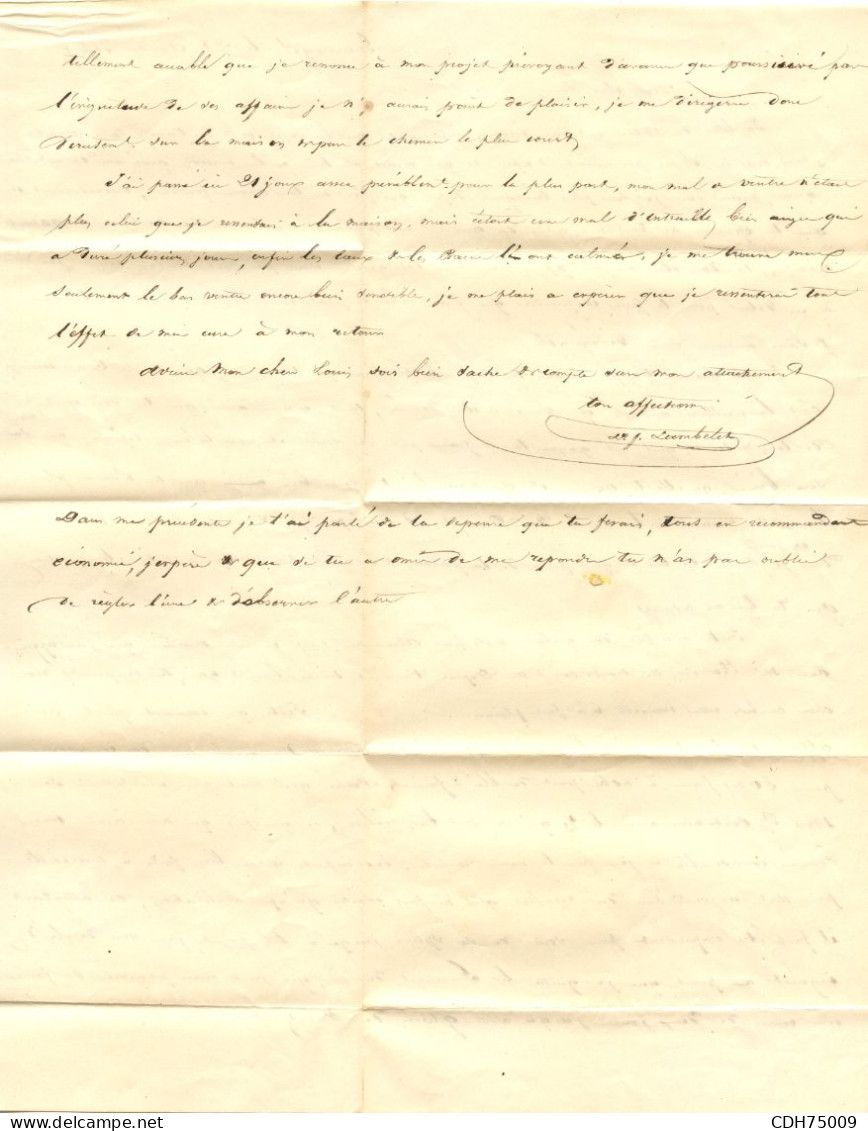 tellement que je renonce à mon projet prévoyant d'avance que poursuivé par
l'inquietude de ses affair je n'y aurais point de plaisir, je me dirigerai donc
Directent. sur la maison par le chemin le plus court,
J'ai passé ici 21 jours assez péniblent. pour la plus part, mon mal de ventre n'étai
plus celui que je ressentais à la maison, mais c'étoit un mal d'entraille, bien aigu qui
a duré plusieurs jours, enfin les eaux & les l'ont calmés, je me trouve mieux
seulement le bas ventre encore bien sensible, je me plais a espérer que je ressentirai tout
l'effet de ma cure à mon retour
adieu Mon cher Louis sois bien sache & compte sur mon attachement
ton affectionné
Lambelet
Dans ma précédente je t'ai parlé de la depense que tu ferais, tout en recommandant
économie, j'espère & que si tu a omis de me repondre tu n'as pas oublié
de règler l'une & d'observer l'autre
CDH75009